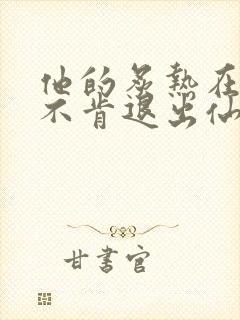 他的炙热在
不肯退出仙
甘書官